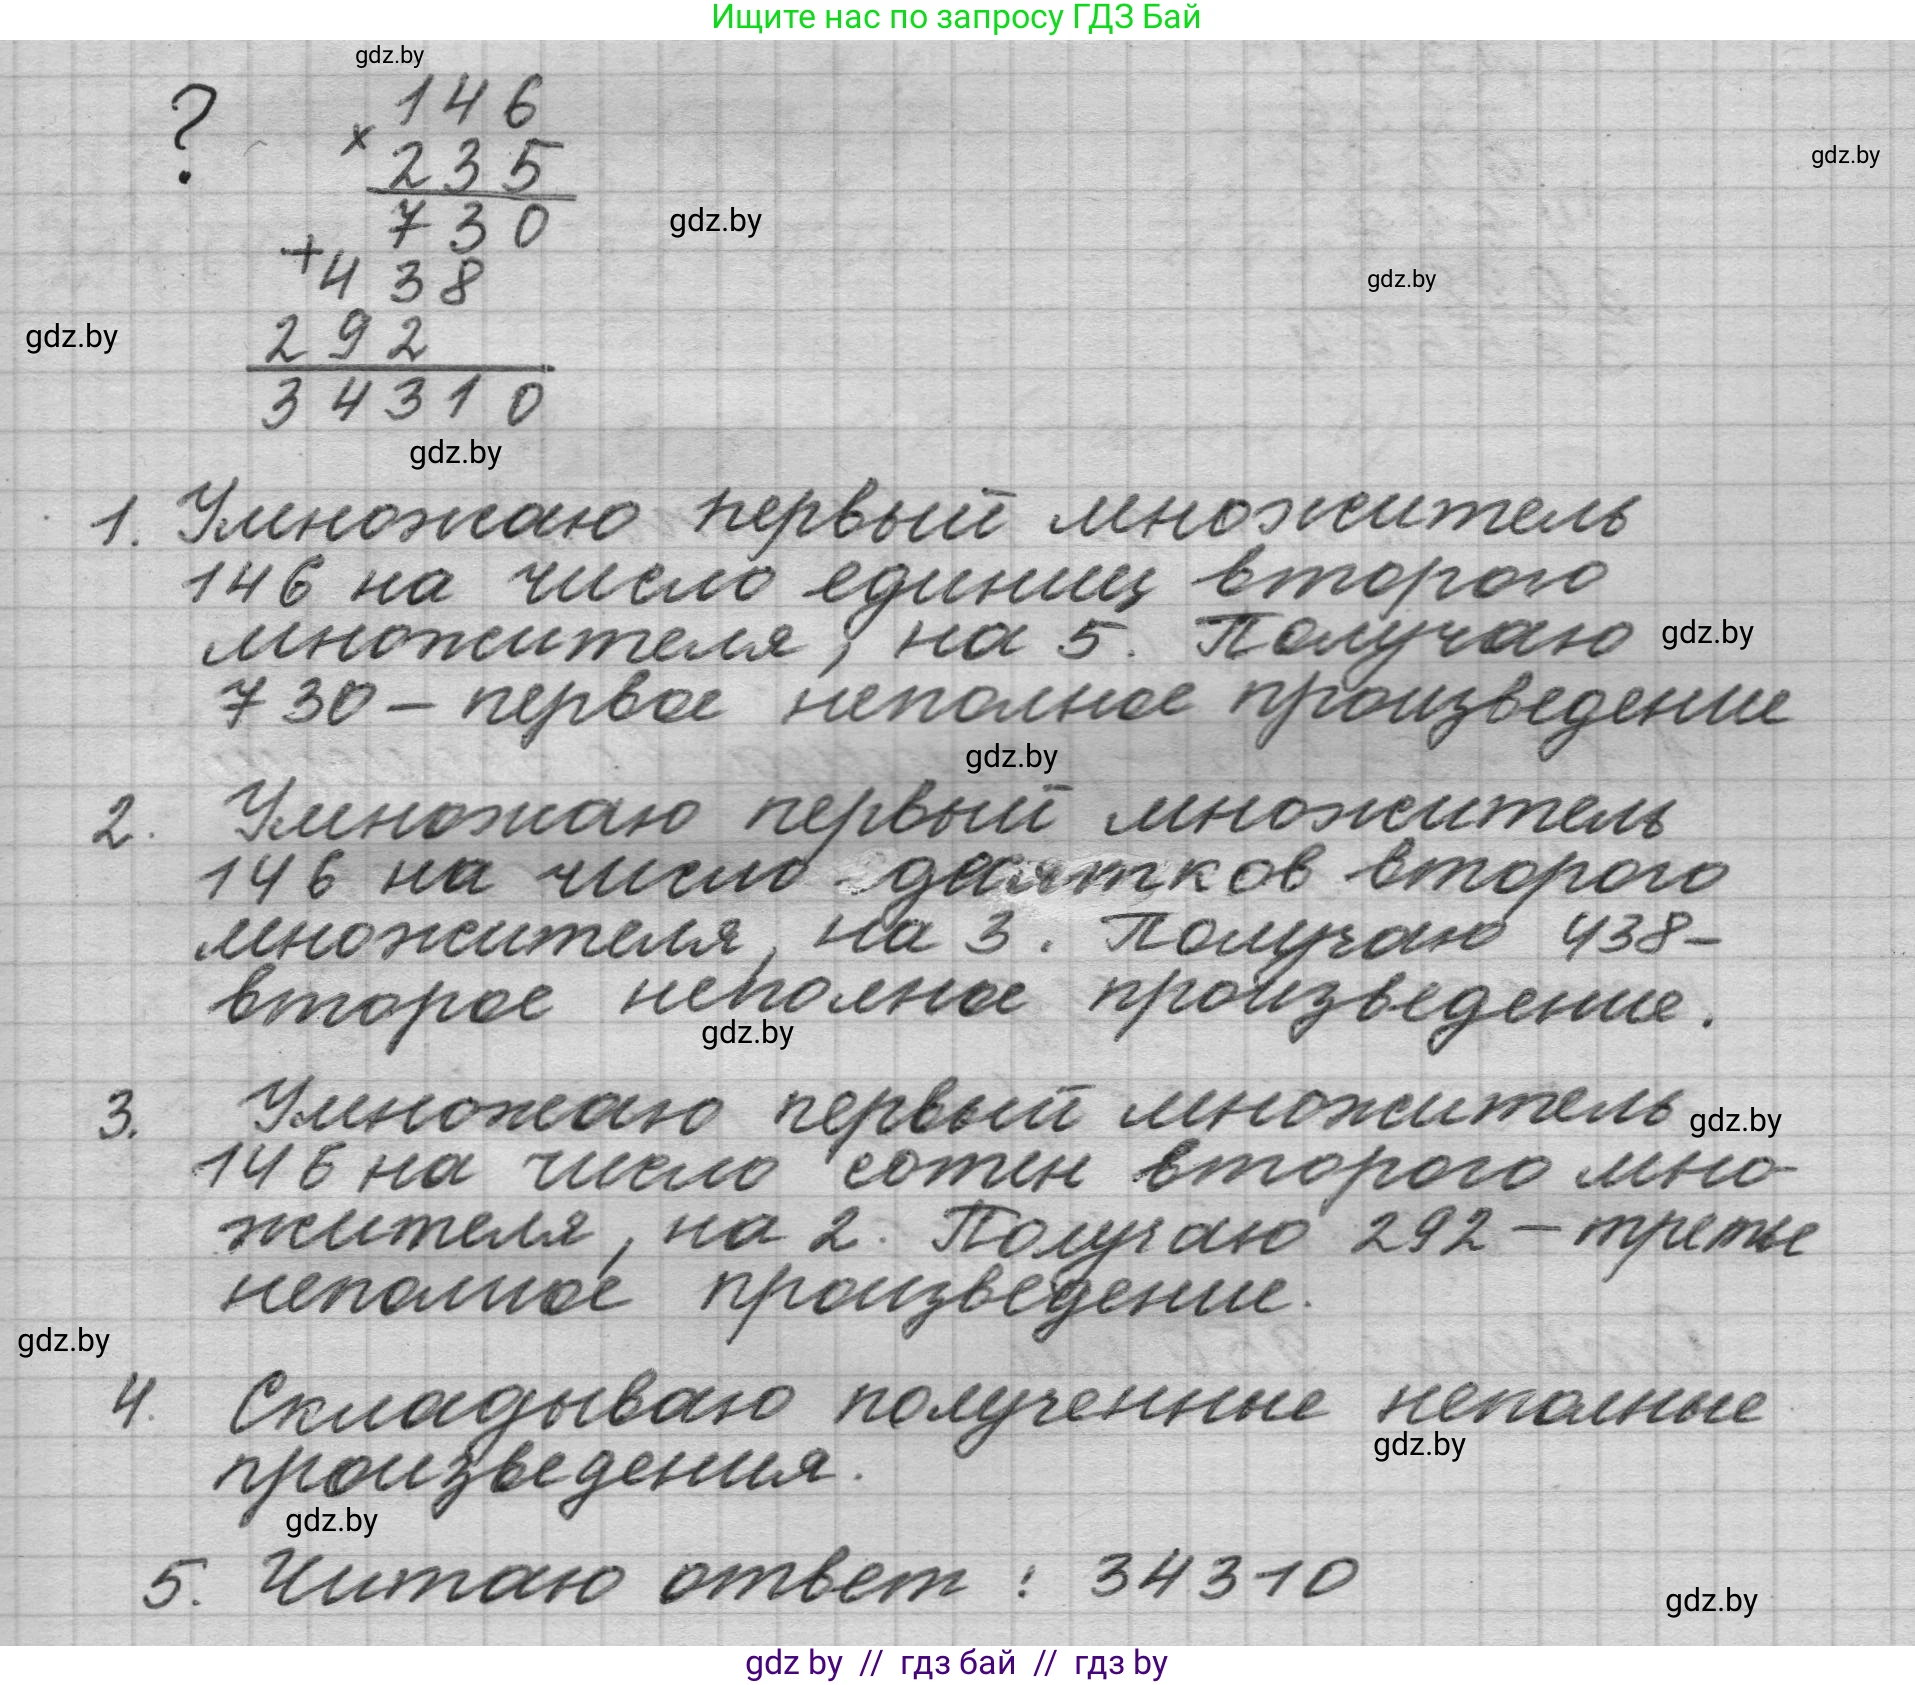 Ищите нас по запросу ГДЗ Бай
gdz.by
? 146
× 235
gdz.by
730
gdz.by
+ 438
gdz.by
292
gdz.by
34310
gdz.by
1. Умножаю первый множитель
146 на число единиц второго
множителя, на 5. Получаю
gdz.by
730 – первое неполное произведение
gdz.by
2. Умножаю первый множитель
146 на число десятков второго
множителя, на 3. Получаю 438 –
второе неполное произведение.
gdz.by
3. Умножаю первый множитель
gdz.by
146 на число сотен второго мно-
жителя, на 2. Получаю 292 – третье
неполное произведение.
gdz.by
4. Складываю полученные неполные
gdz.by
произведения.
gdz.by
5. Читаю ответ : 34310
gdz.by
gdz by // гдз бай // гдз by